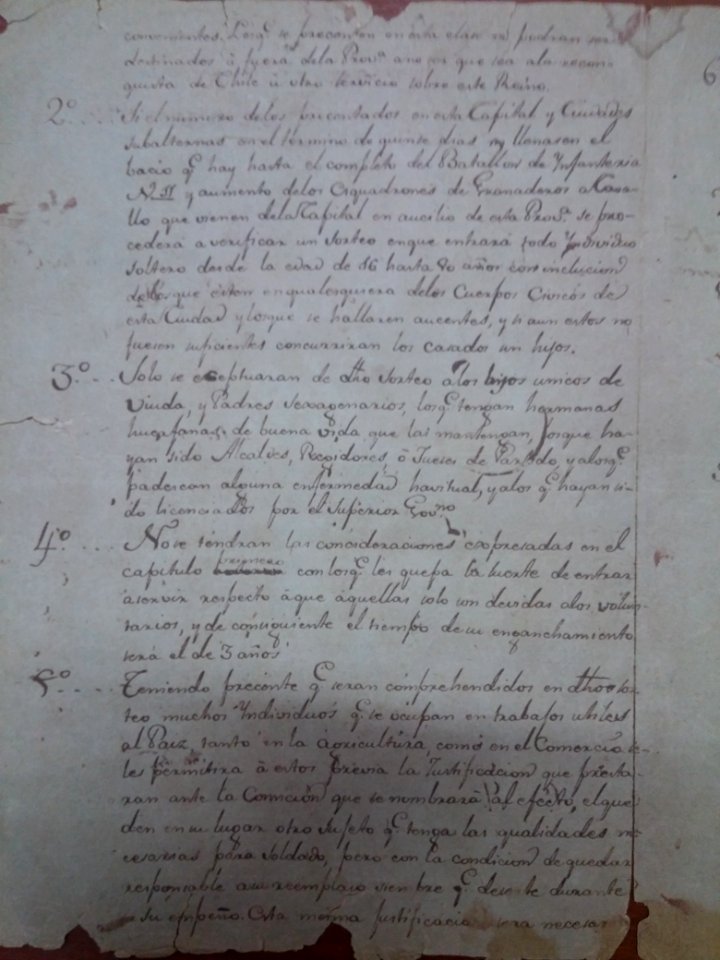 convenientes. Los q.e se precenten en esta clase no podran ser
destinados á fuera dela Prov.a ano ser que sea ala recon-
quista de Chile ú otro servicio sobre este Reino.
2º... Si el numero delos precentados en esta Capital y Ciudades
subalternas en el término de quinse dias no llenasen el
bacio q.e hay hasta el completo del Batallon de Infanteria
Nº 11 y aumento delos Esquadrones de Granaderos a Cava-
llo que vienen dela Capital en aucilio de esta Prov.a se pro-
cederá a verificar un Sorteo enque entrará todo Individuo
soltero desde la edad de 16 hasta 50 años con inclucion
delos que esten en qualesquiera delos Cuerpos Civicos de
esta Ciudad y losque se hallaren aucentes, y si aun estos no
fuesen suficientes concurriran los casados sin hijos.
3º... Solo se eceptuaran de dho Sorteo a los hijos unicos de
Viuda, y Padres Sexagenarios, los q.e tengan hermanas
huerfanas de buena vida que las mantengan, losque ha-
yan sido Alcaldes, Regidores, ó Jueces de Partido, y alos q.e
padescan alguna enfermedad havitual, y alos q.e hayan si-
do licenciados por el Superior Gov.no
4º... No se tendran las concideraciones expresadas en el
capitulo primero con los q.e les quepa la suerte de entrar
á servir respecto áque aquellas solo son devidas alos volun-
tarios, y de consiguiente el tiempo de su enganchamiento
será el de 3 años
5º... Teniendo precente q.e seran comprehendidos en dhos sor-
teo muchos Individuos q.e se ocupan en trabajos utiles
al Paiz, tanto en la agricultura, como en el Comercio se
les permitira á estos previa la Justificacion que presta-
ran ante la Comicion que se nombrará al efecto, el que
den en su lugar otro sujeto q.e tenga las qualidades ne-
cesarias para soldado, pero con la condicion de quedar
responsable a su reemplaso siempre q.e deserte durante
su empeño. Esta misma justificacion sera necesar